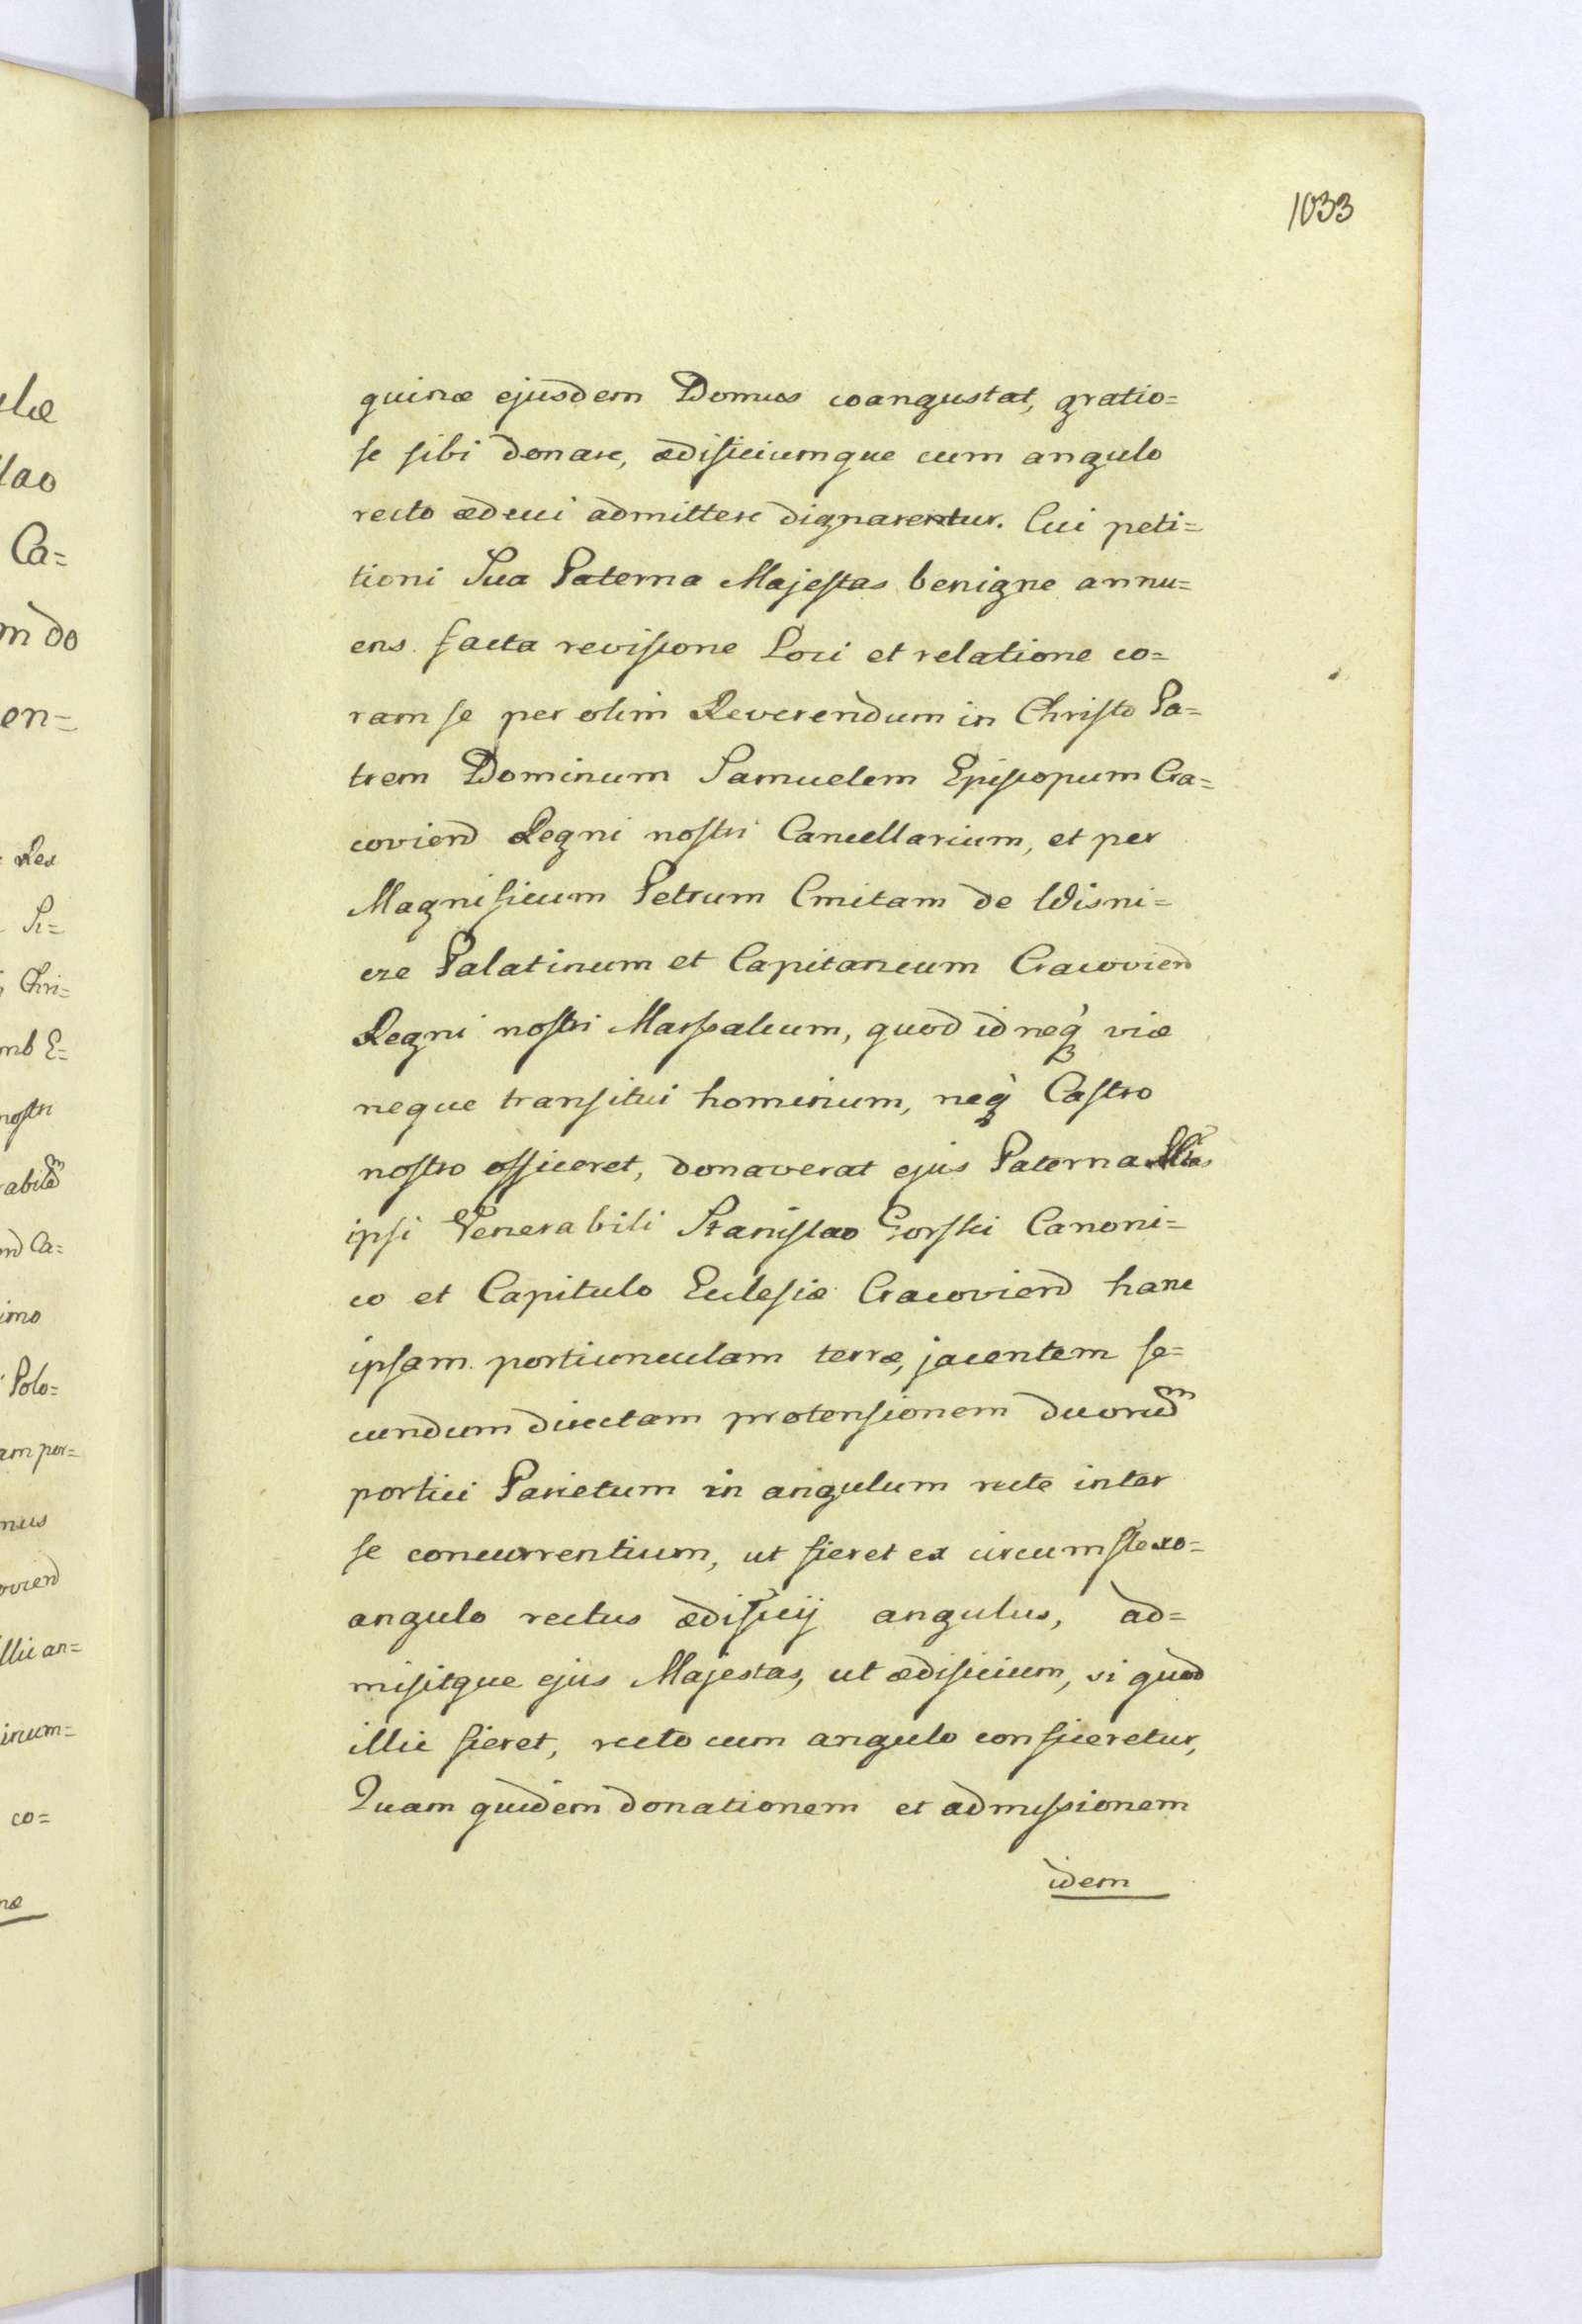 1033
quinæ ejusdem Domus coangustat, gratio=
se sibi donare, ædificiumque cum angulo
recto æduci admittere dignarentur. Cui peti=
tioni Sua Paterna Majestas benigne annu=
ens. facta revisione Loci et relatione co=
ram se per olim Reverendum in Christo Pa=
trem Dominum Samuelem Episcopum Cra=
coviend Regni nostri Cancellarium, et per
Magnificum Petrum Cmitam de Wisni=
cze Palatinum et Capitaneum Cracoviend
Regni nostri Marsalcum, quod id neq3 viæ
neque transitui hominum, neq3 Castro
nostro officeret, donaverat ejus Paterna Mtas
ipsi Venerabili Stanislao Gorski Canoni=
co et Capitulo Ecclesiæ Cracoviend hanc
ipsam portiunculam terræ, jacentem se=
cundum directam protensionem duorum
portici Parietum in angulum recte inter
se concurrentium, ut fieret ex circumflexo=
angulo rectus ædificij angulus, ad=
misitque ejus Majestas, ut ædificium, si quod
illic fieret, recto cum angulo conficeretur,
Quam quidem donationem et admissionem
idem
læ
lao
Ca=
ndo
en=
Rex
Si=
Chri=
mb E=
nostri
nd Ca=
imo
Polo=
am por=
nus
oviend
llic an=
irum=
co=
næ